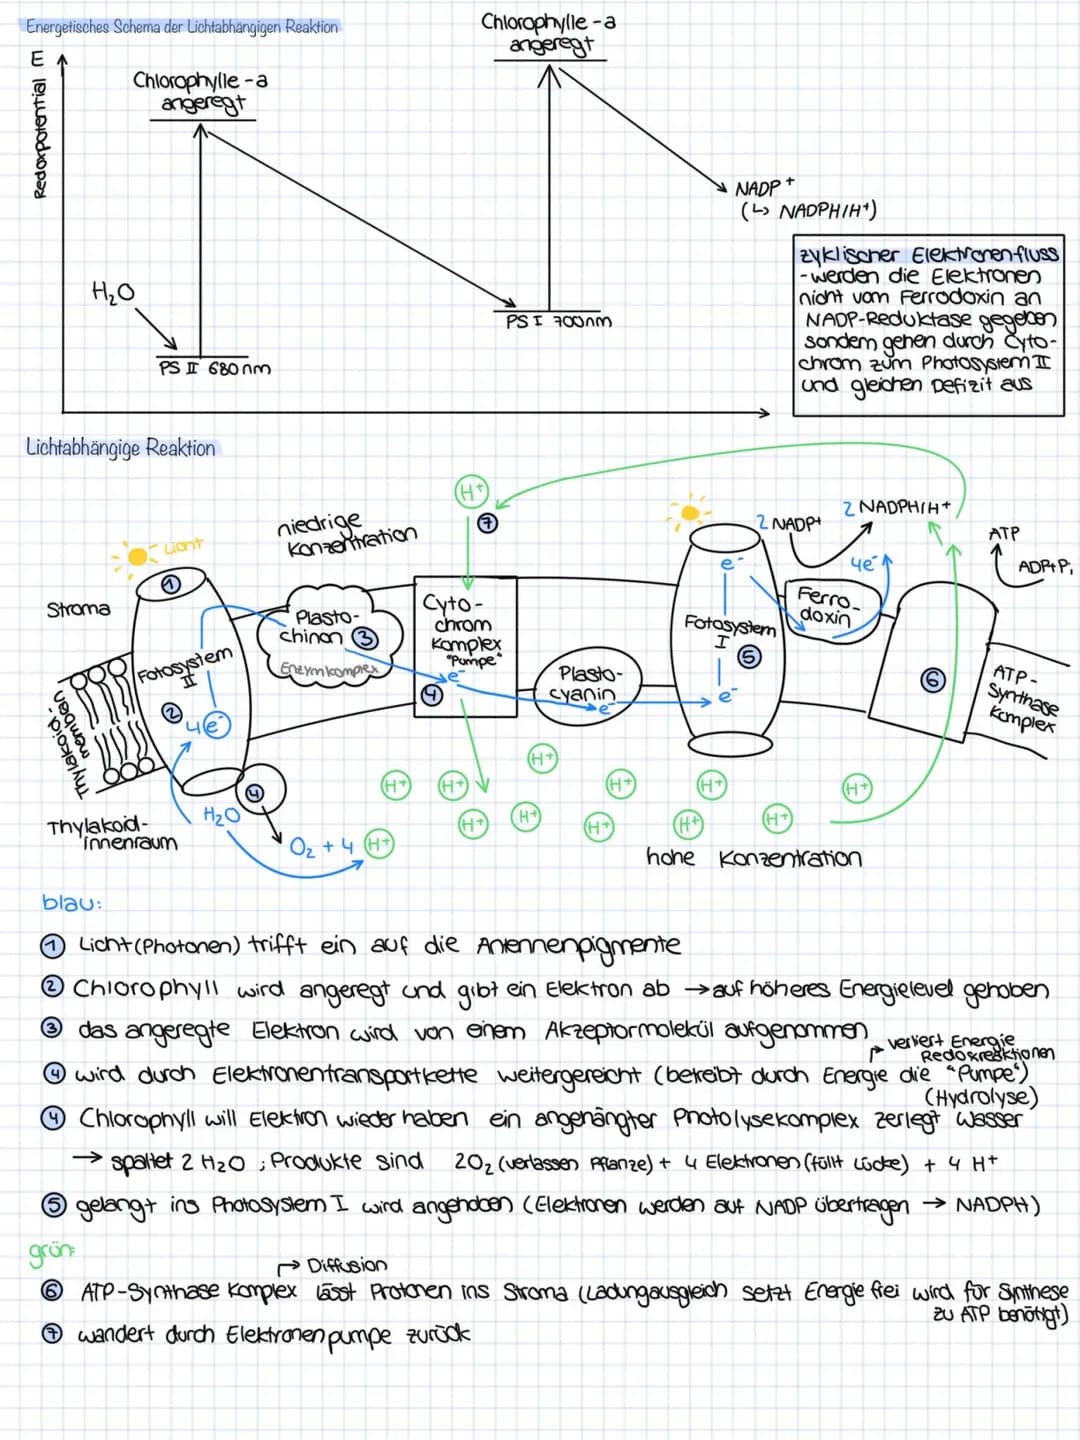 Energetisches Schema der Lichtabhängigen Reaktion
Redoxpotential E
Chlorophylle-a
angeregt
Chlorophylle-a
angeregt
NADP+
(↳ NADPH/H+)
H₂O
PS I 700nm
PS II 680nm
zyklischer Elektronenfluss
-werden die Elektronen
nicht vom Ferrodoxin an
NADP-Reduktase gegeben
sondern gehen durch Cyto-
chrom zum Photosystem II
und gleichen Defizit aus
Lichtabhängige Reaktion
H+
7
niedrige
Konzentration
Licht
Stroma
1
Fotosystem
II
2
4e⁻
Thylakoid
membran
Thylakoid-
innenraum
H₂O
4
O₂ + 4 H+
Plasto-
chinon 3
Enzymkomplex
Cyto-
chrom
Komplex
"Pumpe"
e⁻
4
Plasto-
cyanin
e⁻
e⁻
Fotosystem
I
5
e⁻
2 NADP+
2 NADPH/H+
4e⁻
Ferro-
doxin
ATP
ADP+Pi
6
ATP-
Synthase
Komplex
H+
H+
H+
H+
H+
H+
H+
H+
H+
H+
H+
hohe Konzentration
blau:
1 Licht (Photonen) trifft ein auf die Antennenpigmente
2 Chlorophyll wird angeregt und gibt ein Elektron ab → auf höheres Energielevel gehoben
3 das angeregte Elektron wird von einem Akzeptormolekül aufgenommen
↱ verliert Energie
Redoxreaktionen
4 wird durch Elektronentransportkette weitergereicht (betreibt durch Energie die "Pumpe")
(Hydrolyse)
4 Chlorophyll will Elektron wieder haben ein angehängter Photolysekomplex zerlegt Wasser
→ spaltet 2 H₂O ; Produkte sind 2O₂ (verlassen Pflanze) + 4 Elektronen (füllt Lücke) + 4 H+
5 gelangt ins Photosystem I wird angehoben (Elektronen werden auf NADP übertragen → NADPH)
grün:
↱ Diffusion
6 ATP-Synthase Komplex lässt Protonen ins Stroma (Ladungausgleich setzt Energie frei wird für Synthese
zu ATP benötigt)
7 wandert durch Elektronenpumpe zurück